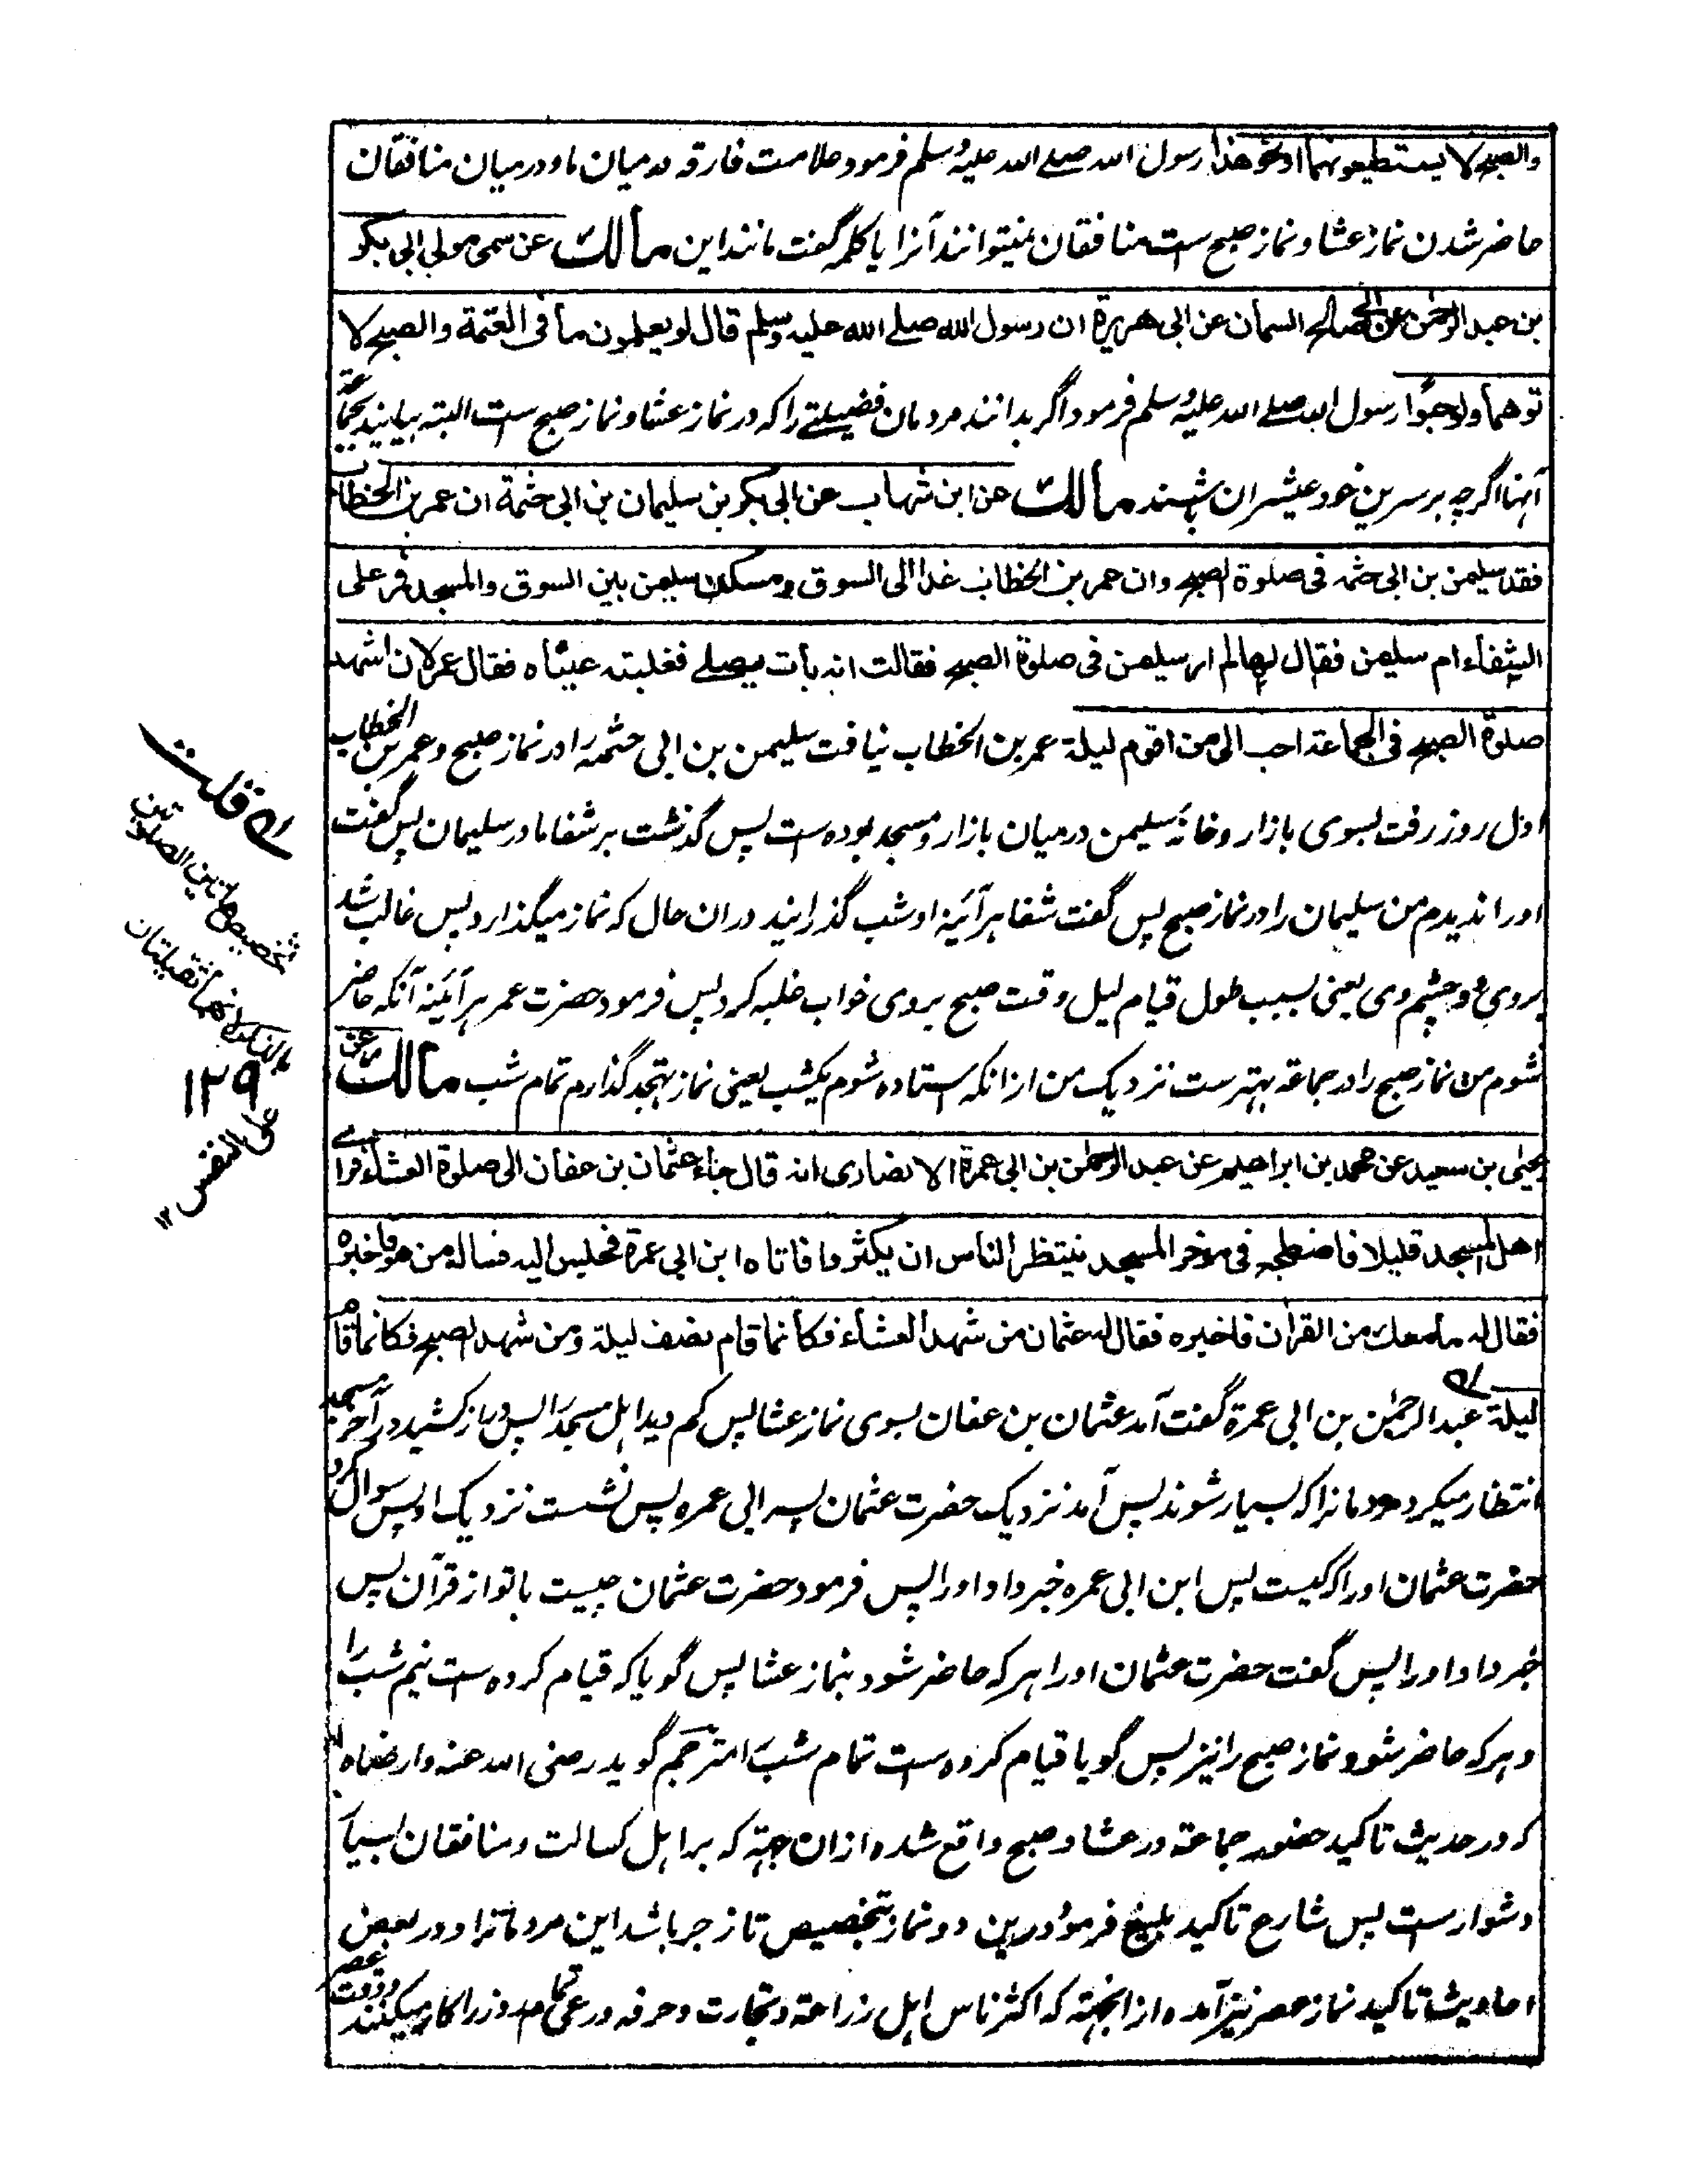 والصبح لا يستطيعونهما او نحو هذا رسول الله صلے الله عليه وسلم فرمود علامت فارقه درميان ما و درميان منافقان
حاضر شدن نماز عشا و نماز صبح ست منافقان نميتوانند آنرا يا كلمه گفت مانند اين مالك عن سمى مولى ابى بكر
بن عبد الرحمن عن ابى صالح السمان عن ابى هريرة ان رسول الله صلے الله عليه وسلم قال لو يعلمون ما فى العتمة والصبح لا
توهما ولو حبوًا رسول الله صلے الله عليه وسلم فرمود اگر بدانند مردمان فضيلتے را كه در نماز عشا و نماز صبح ست البته بيايند بجماعة
آنها اگرچه بر سرين خود عيشران باشند مالك عن ابن شهاب عن ابى بكر بن سليمان بن ابى حثمة ان عمر بن الخطاب
فقد سليمن بن ابى حثمه فى صلوة الصبح وان عمر بن الخطاب غدا الى السوق ومسكن سليمن بين السوق والمسجد فمر على
الشفاء ام سليمن فقال لها لم ار سليمن فى صلوة الصبح فقالت انه بات يصلے فغلبته عيناه فقال عمر لان اشهد
صلوة الصبح فى الجماعة احب الى من اقوم ليلة عمر بن الخطاب نيافت سليمن بن ابى حثمه را در نماز صبح و عمر بن الخطاب
اول روز رفت بسوى بازار و خانهٔ سليمن درميان بازار و مسجد بوده ست پس گذشت بر شفا مادر سليمان پس گفت
اورا نديدم من سليمان را در نماز صبح پس گفت شفا هر آئينه او شب گذرانيد دران حال كه نماز ميگذارد پس غالب شد
بروى دو چشم وى يعنى بسبب طول قيام ليل وقت صبح بروى خواب غلبه كرد پس فرمود حضرت عمر هر آئينه آنكه حاضر
شوم من نماز صبح را در جماعة بهتر ست نزديك من ازانكه ستاده شوم يكشب يعنى نماز تهجد گذارم تمام شب مالك عن
يحيى بن سعيد عن محمد بن ابراهيم عن عبد الرحمن بن ابى عمرة الانصارى انه قال جاء عثمان بن عفان الى صلوة العشاء فراے
اهل المسجد قليلا فاضطجع فى مؤخر المسجد ينتظر الناس ان يكثروا فاتاه ابن ابى عمرة فجلس اليه فساله من هو فاخبره
فقال له ما معك من القران فاخبره فقال له عثمان من شهد العشاء فكانما قام نصف ليلة ومن شهد الصبح فكانما قام
ليلة عبد الرحمٰن بن ابى عمرة گفت آمد عثمان بن عفان بسوى نماز عشا پس كم ديد اهل مسجد را پس دراز كشيد در آخر مسجد
انتظار ميكرد مردمانرا كه بسيار شوند پس آمد نزديك حضرت عثمان پسر ابى عمره پس نشست نزديك او پس سوال كرد
حضرت عثمان اورا كه كيست پس ابن ابى عمره خبر داد اورا پس فرمود حضرت عثمان چيست با تو از قرآن پس
خبر داد اورا پس گفت حضرت عثمان اورا هر كه حاضر شود بنماز عشا پس گويا كه قيام كرده ست نيم شب را
و هر كه حاضر شود نماز صبح را نيز پس گويا قيام كرده ست تمام شب را مترجم گويد رضى الله عنه وارضاه
كه در حديث تاكيد حضور جماعة در عشا و صبح واقع شده ازان جهة كه بر اهل كسالت و منافقان بسيار
دشوار ست پس شارع تاكيد بليغ فرمود درين دو نماز بتخصيص تا زجر باشد اين مردمانرا و در بعض
احاديث تاكيد نماز عصر نيز آمده ازانجهة كه اكثر ناس اهل زراعة و تجارت و حرفه در عمل تمام روز را كار ميكنند ووقت عصر
قلت
تخصيص هاتين الصلوتين
بالتاكيد لانهما ثقيلتان
١٢٩
على النفس ١٢